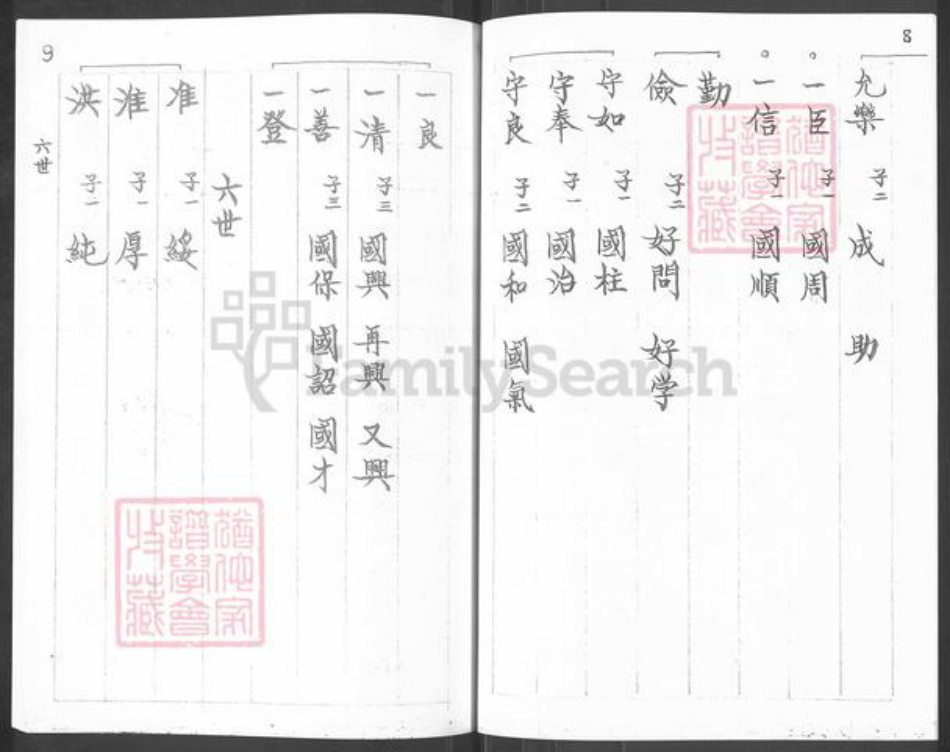 8
允樂 子二 成 助
一臣 子一 國周
一信 子一 國順
勤
儉 子二 好問 好学
守如 子一 國柱
守奉 子一 國治
守良 子二 國和 國氣
9
一良
一清 子三 國興 再興 又興
一善 子三 國保 國詔 國才
一登
六世
准 子一 綏
淮 子一 厚
洪 子一 純
六世
FamilySearch